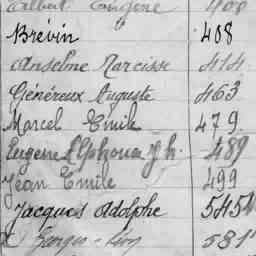 Albert Eugène 408
Brévin 408
Anselme Narcisse 414
Généreux Auguste 463
Marcel Emile 479
Eugene Alphonse Jh. 489
Jean Emile 499
Jacques Adolphe 545
581